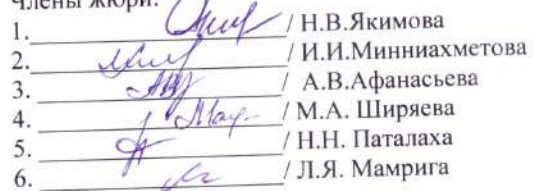 Члены жюри:
1. / Н.В.Якимова
2. / И.И.Минниахметова
3. / А.В.Афанасьева
4. / М.А. Ширяева
5. / Н.Н. Паталаха
6. / Л.Я. Мамрига